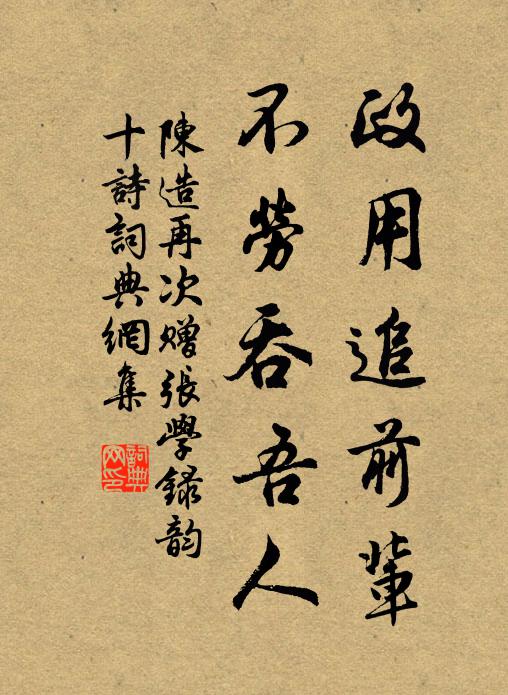 政用追前輩
不勞吞吾人
陳造再次贈張學録韵
十詩詞典網集
詞典网印